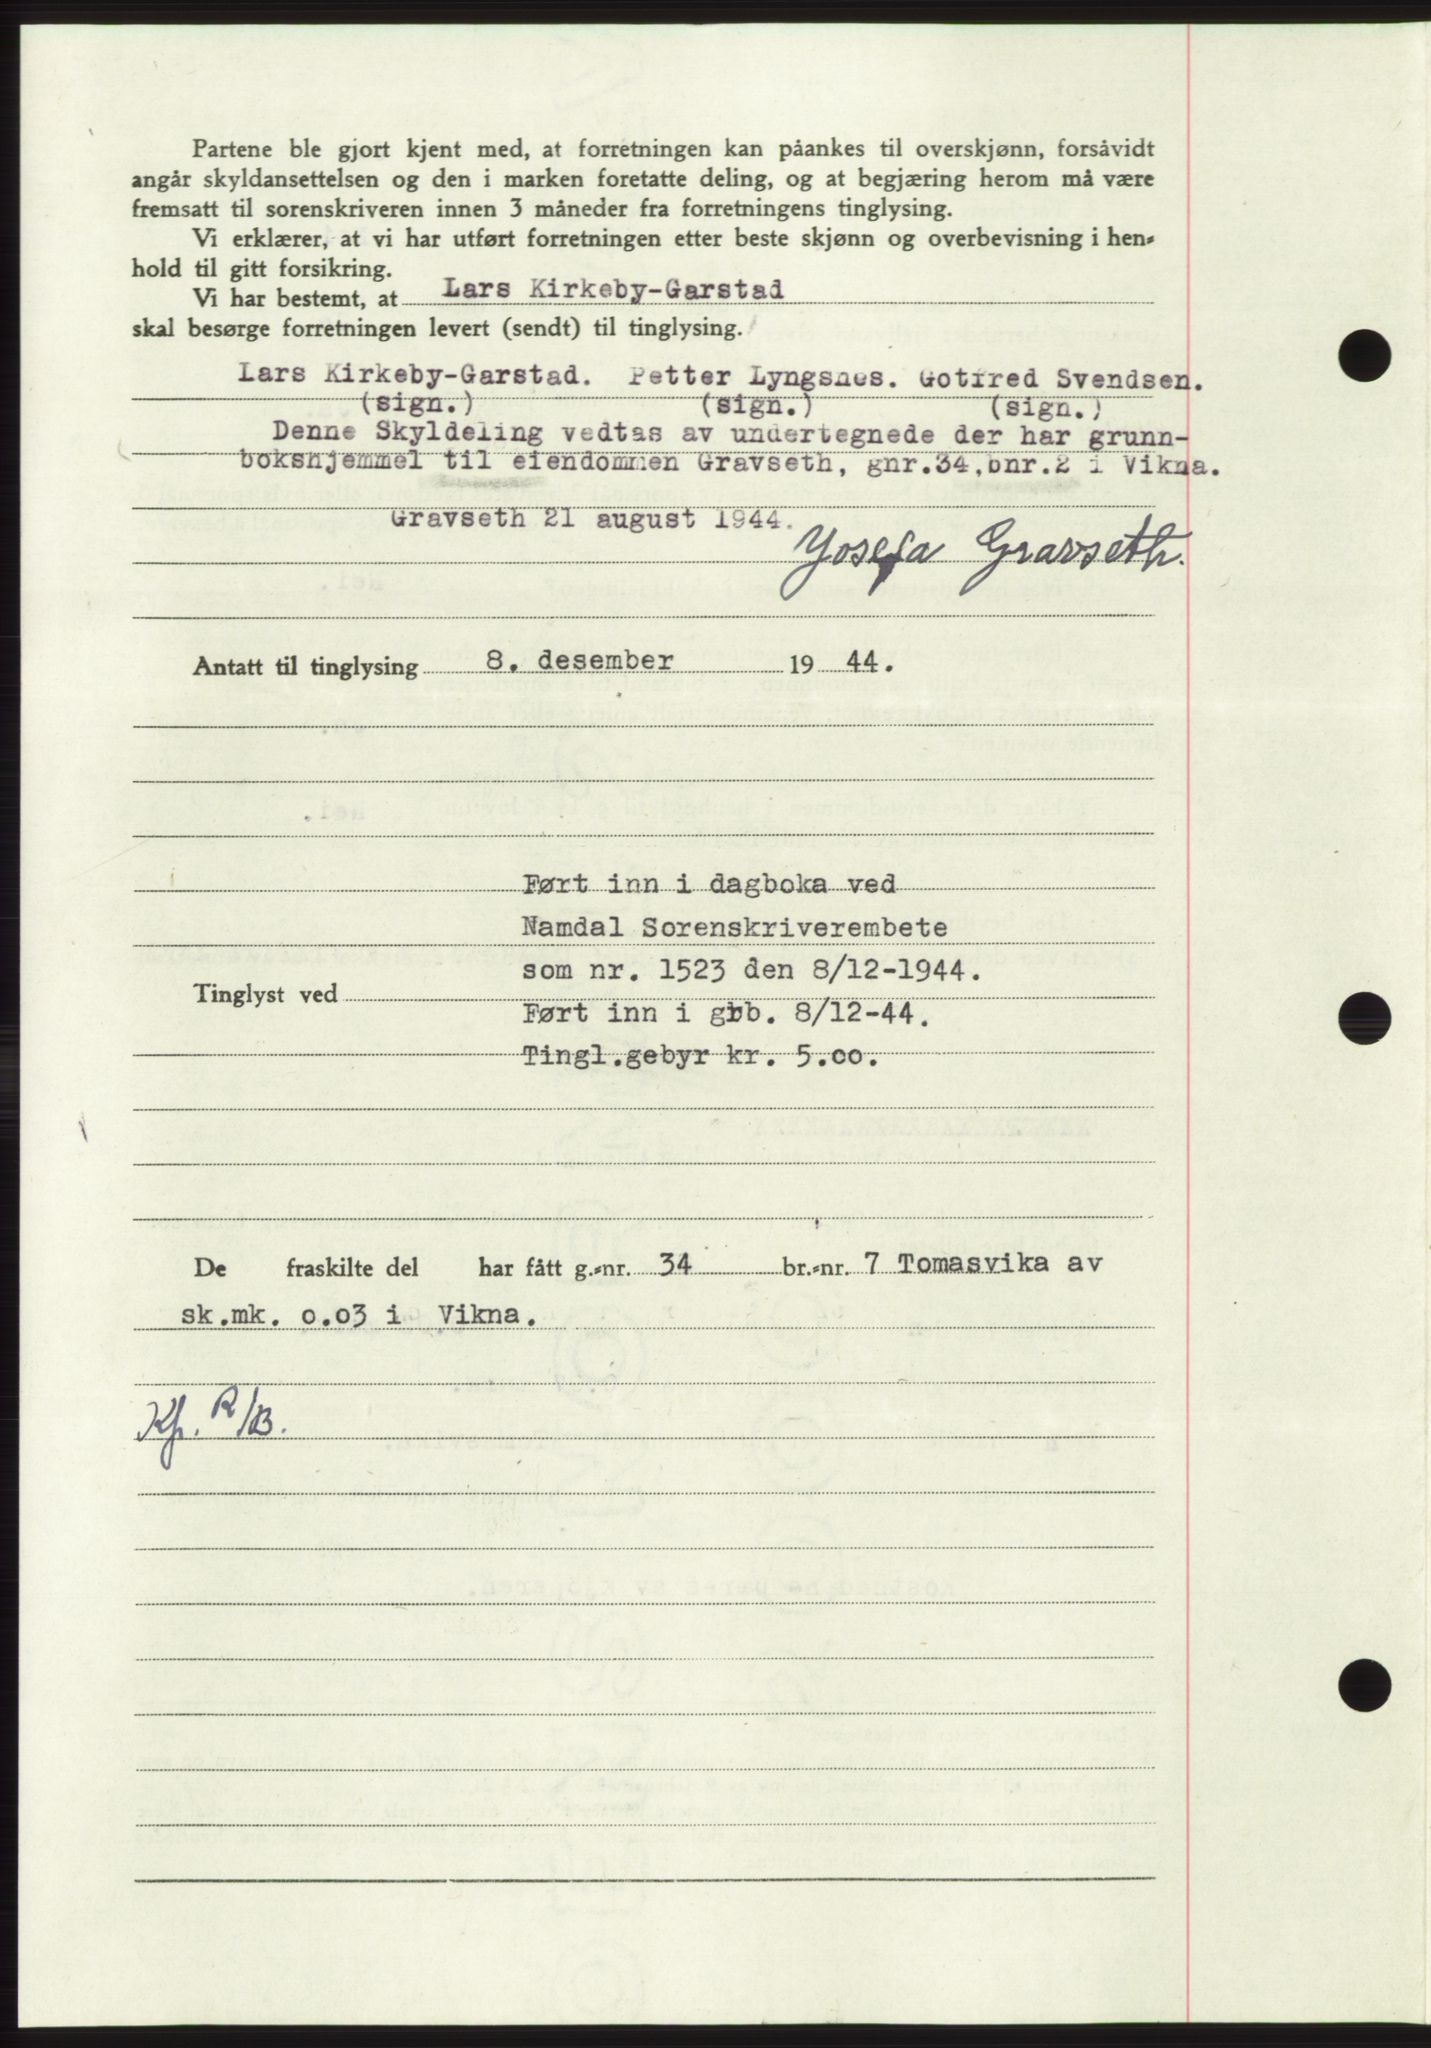 Partene ble gjort kjent med, at forretningen kan påankes til overskjønn, forsåvidt
angår skyldansettelsen og den i marken foretatte deling, og at begjæring herom må være
fremsatt til sorenskriveren innen 3 måneder fra forretningens tinglysing.
Vi erklærer, at vi har utført forretningen etter beste skjønn og overbevisning i hen-
hold til gitt forsikring.
Vi har bestemt, at Lars Kirkeby-Garstad
skal besørge forretningen levert (sendt) til tinglysing.
Lars Kirkeby-Garstad. Petter Lyngsnes. Gotfred Svendsen.
(sign.) (sign.) (sign.)
Denne Skyldeling vedtas av undertegnede der har grunn-
bokshjemmel til eiendommen Gravseth, gnr.34,bnr.2 i Vikna.
Gravseth 21 august 1944.
Josefa Gravseth.
Antatt til tinglysing 8. desember 19 44.
Ført inn i dagboka ved
Namdal Sorenskriverembete
som nr. 1523 den 8/12-1944.
Tinglyst ved
Ført inn i grb. 8/12-44.
Tingl.gebyr kr. 5.oo.
De fraskilte del har fått g.-nr. 34 br.-nr. 7 Tomasvika av
sk.mk. o.o3 i Vikna.
Kfr. R/B.